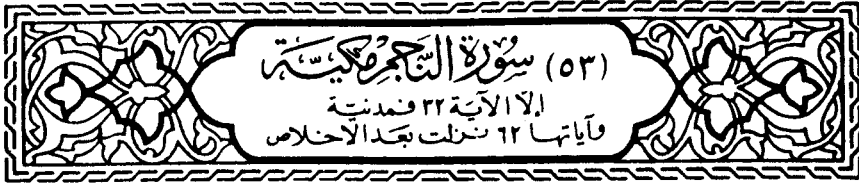 (٥٣) سُورَة النَّجْمِ مَكِّيَّة
إلّا الآيَة ٣٢ فمدنيّة
وَآيَاتها ٦٢ نزلت بَعْد الاخلاص